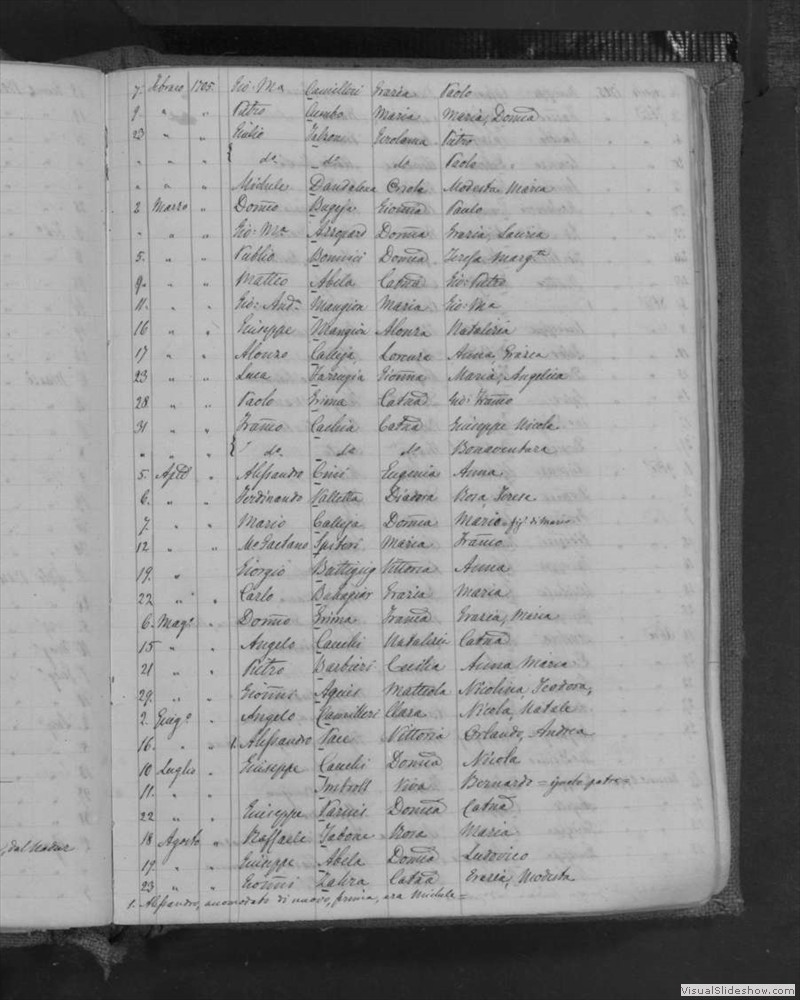 7. Febraro 1705 Gio: Ma Camilleri Grazia Paolo
9 " " Pietro Maria Maria, Domca
23 " " Giulio Gerolama Pietro
" " " { do do do Paolo
" " " Michele Dandalona Modesta Maria
2 Marzo " Domco Bugeja Gioanna Paulo
" " " Gio: Ma Domca Grazia, Lauria
5. " " Publio Bonnici Domca Teresa Margta
9. " " Matteo Abela Catna Gio: Pietro
11. " " Gio: Anda Mangion Maria Gio: Ma
16 " " Giuseppe Mangion Alonza Natalizia
17 " " Alonzo Calleja Lorenza Anna, Grazia
23 " " Luca Farrugia Gioanna Maria, Angelica
28 " " Paolo Grima Catna Gio: Franco
31 " " Franco Cachia Catna Giuseppe Nicola
" " " { do do do Bonaventura
5. Aple " Alessandro Eugenia Anna
6. " " Ferdinando Valletta Diadora Rosa, Teresa
7. " " Mario Calleja Domca Maria
12 " " Gaetano Spiteri Maria Franco
19. " Giorgio Battigug Vittoria Anna
22 " " Carlo Buhagiar Grazia Maria
6. Mago " Domco Grima Franca Grazia, Maria
15 " " Angelo Cauchi Natalizia Catna
21 " " Pietro Barbieri Cecilia Anna Maria
29. " " Gioanni Agius Matteola Nicolina, Teodora,
2. Giugo " Angelo Camilleri Clara Nicola, Natale
16. " " 1. Alessandro Pace Vittoria Orlando, Andrea
10 Luglio " Giuseppe Cauchi Domca Nicola
11. " " Imbroll Viva Bernardo = ignoto patre =
22 " " Giuseppe Parnis Domca Catna
18 Agosto " Raffaele Tabone Rosa Maria
19 " " Giuseppe Abela Domca Ludovico
23 " " Gioanni Zahra Catna Grazia, Modesta
1. Alessandro, anomodato di nuovo, prima, era Michele =
dal
VisualSlideshow.com